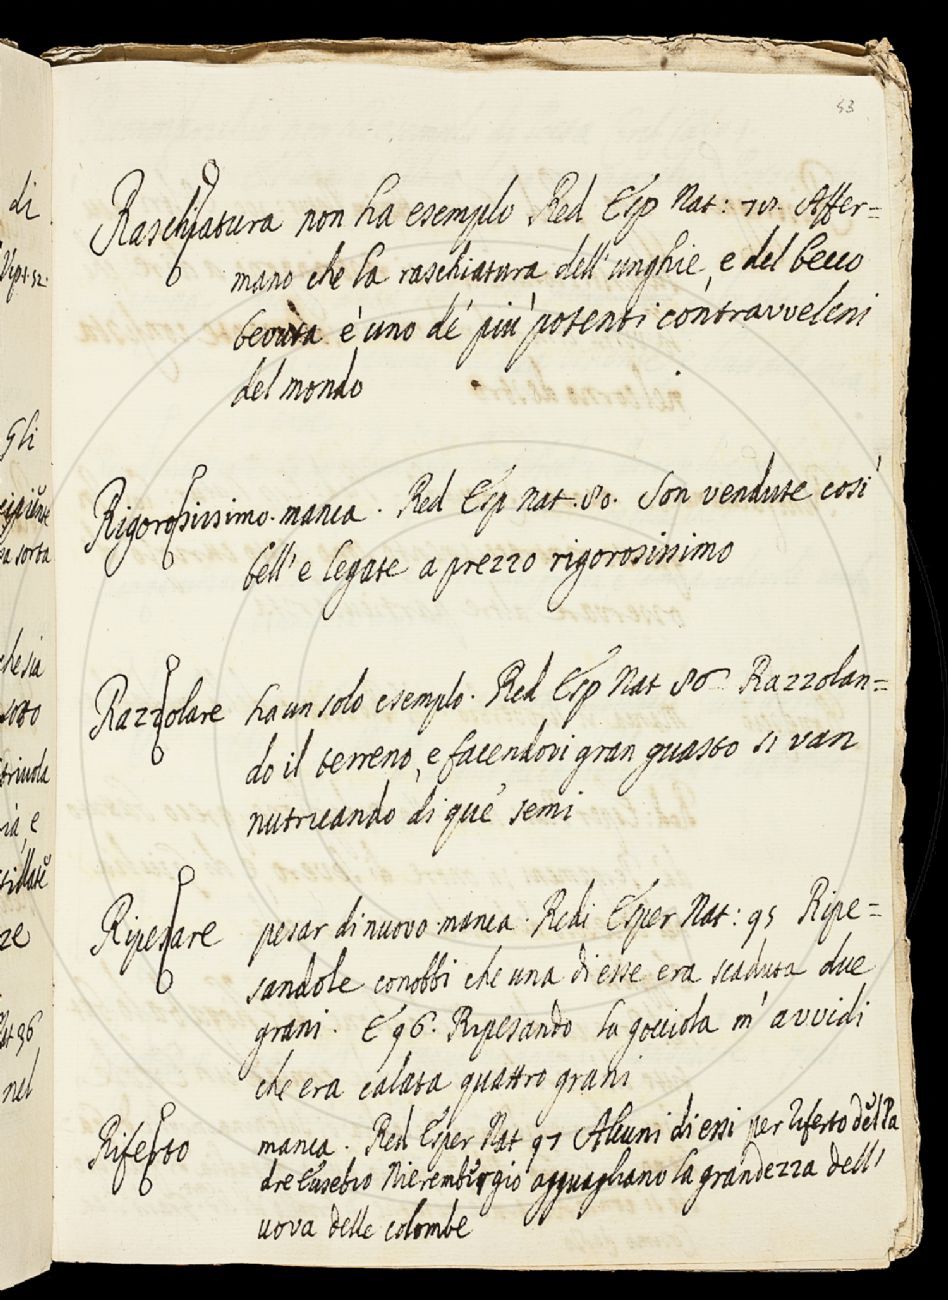 53
Raschiatura non ha esempio Red Esp Nat: 78. Affer=
mano che la raschiatura dell'unghie, e del becco
bevuta è uno de' più potenti contravveleni
del mondo
Rigorosissimo. manca. Red Esp Nat. 80. Son vendute così
bell' e legate a prezzo rigorosissimo
Razzolare ha un solo esempio. Red Esp Nat 86 Razzolan=
do il terreno, e facendovi gran guasto si van
nutricando di que' semi
Ripesare pesar di nuovo manca. Redi Esper Nat: 95 Ripe=
sandole conobbi che una di esse era scaduta due
grani. E 96. Ripesando la gocciola m'avvidi
che era calata quattro grani
Riferto manca. Red Esper Nat 97 Alcuni di essi per riferto del Pa
dre Eusebio Nierembergio agguagliano la grandezza dell'
uova delle colombe
di
gli
a sorta
che sia
sotto
ia, e
ze
Nat 36
nel